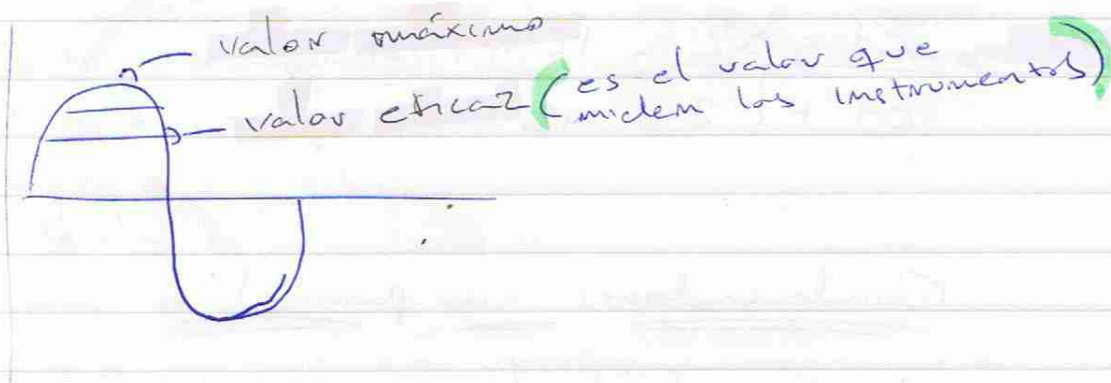 valor máximo
valor eficaz (es el valor que
miden los instrumentos)